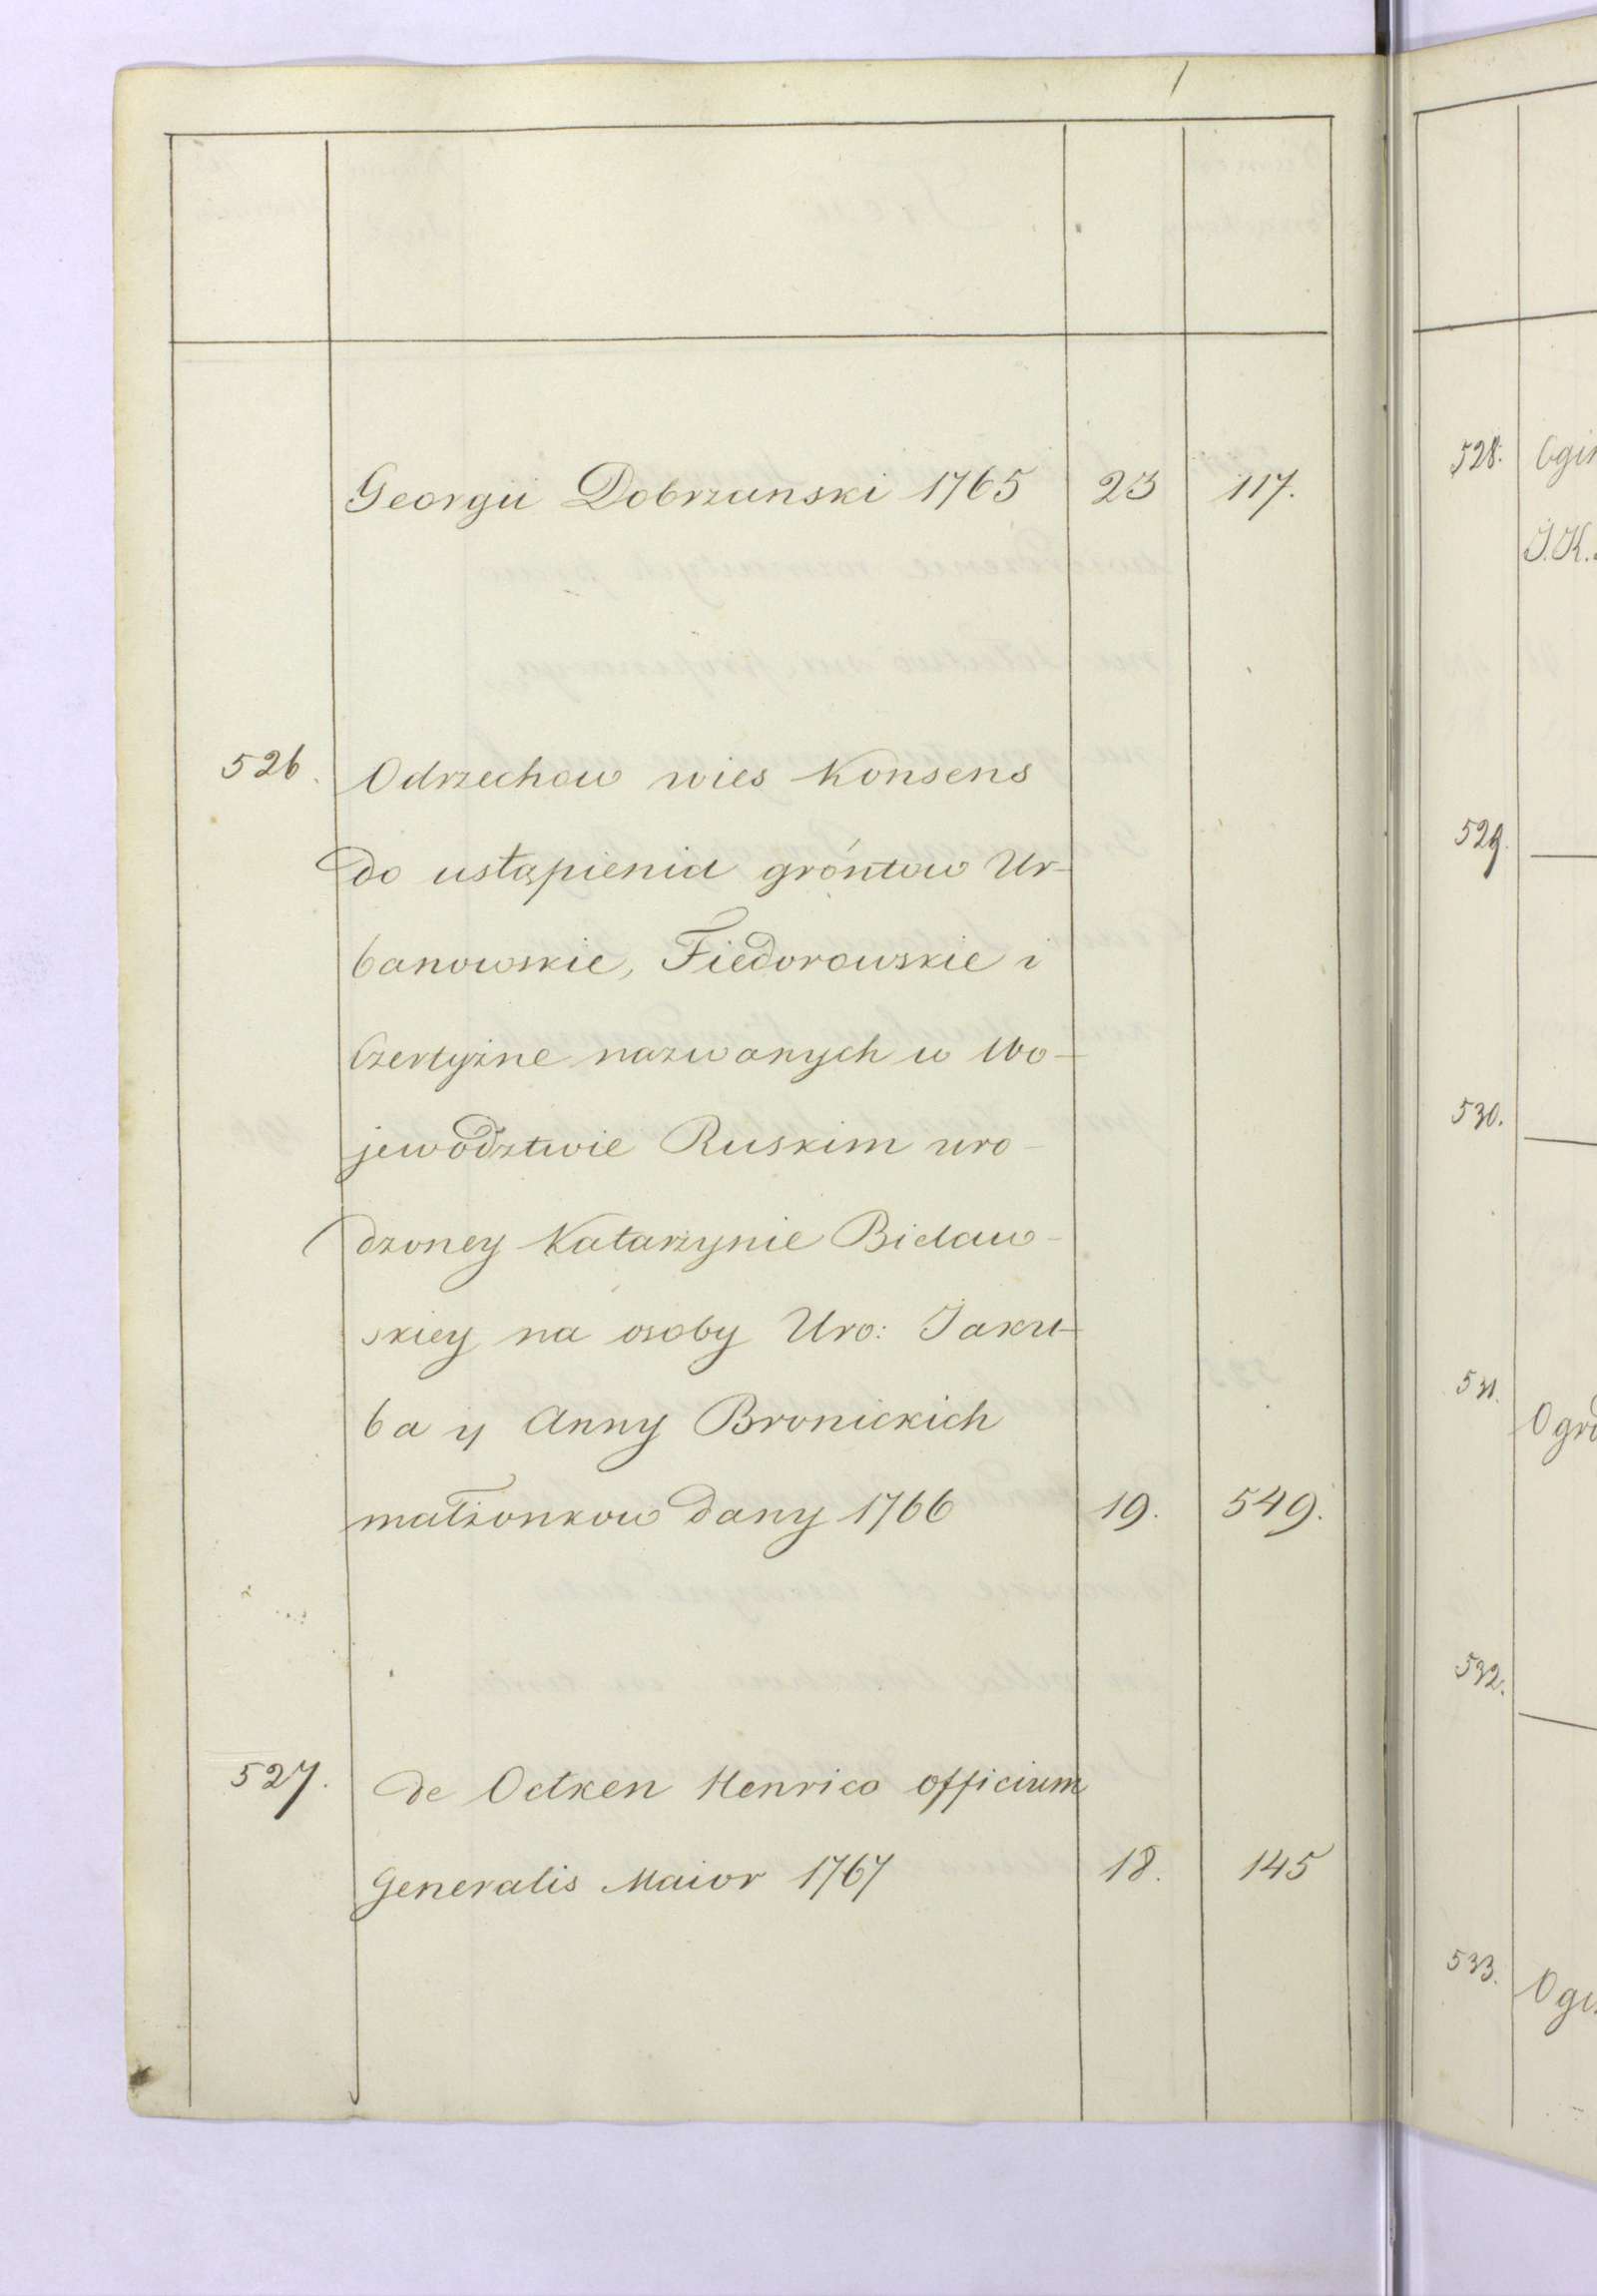 Georgii Dobrzanski 1765 23 117.
526. Odrzechow wies Konsens
do ustąpienia gróntow Ur-
banowskie, Fiedorowskie i
Czertyżne nazwanych w Wo-
jewodztwie Ruskim uro-
dzoney Katarzynie Bielaw-
skiey na osoby Uro: Jaku-
ba y Anny Bronickich
małżonkow dany 1766 19. 549.
527. de Oetken Henrico officium
Generalis Maior 1767 18. 145
528. Ogin
J.K.
529.
530.
531.
Ogro
532.
533. Ogi